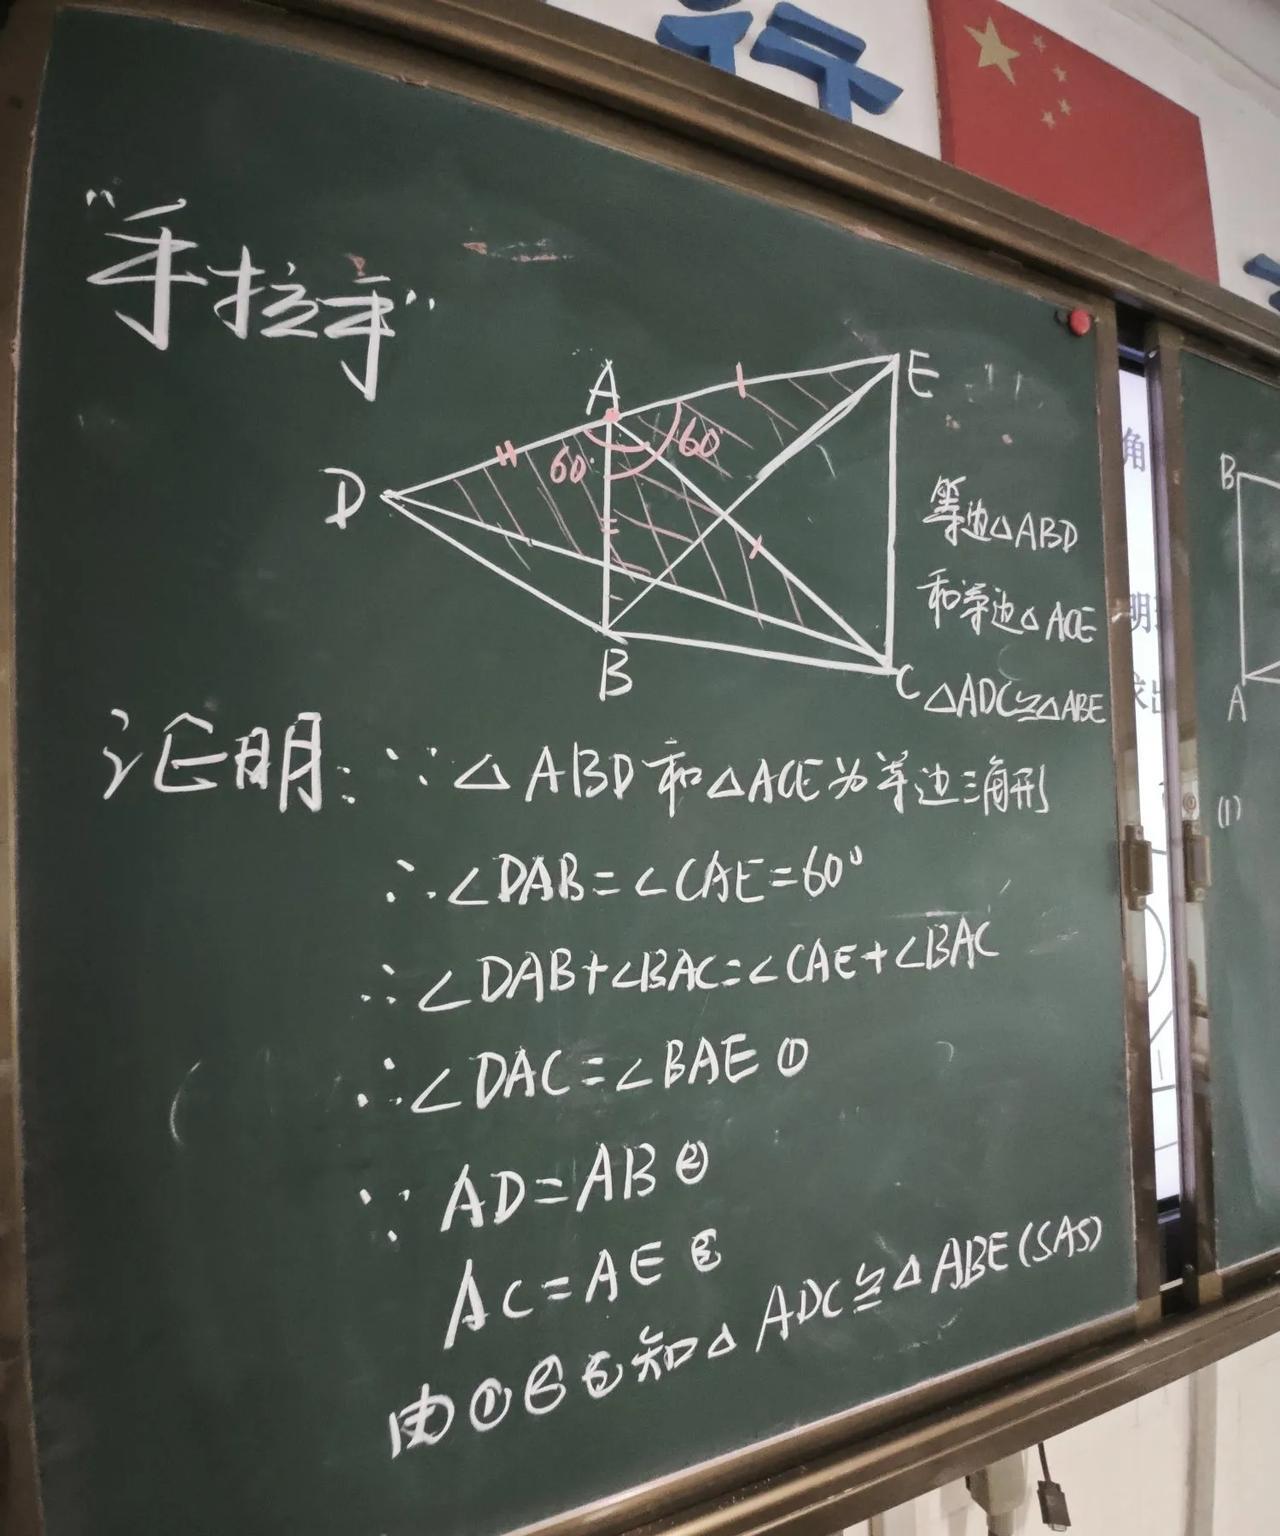 行
"手拉手"
A
E
60°
60°
D
B
C
等边△ABD
和等边△ACE
△ADC≌△ABE
证明: ∵ △ABD和△ACE为等边三角形
∴∠DAB=∠CAE=60°
∴∠DAB+∠BAC=∠CAE+∠BAC
∴∠DAC=∠BAE ①
∵ AD=AB ②
AC=AE ③
由①②③知△ADC≌△ABE(SAS)
角
明
B
A
(1)